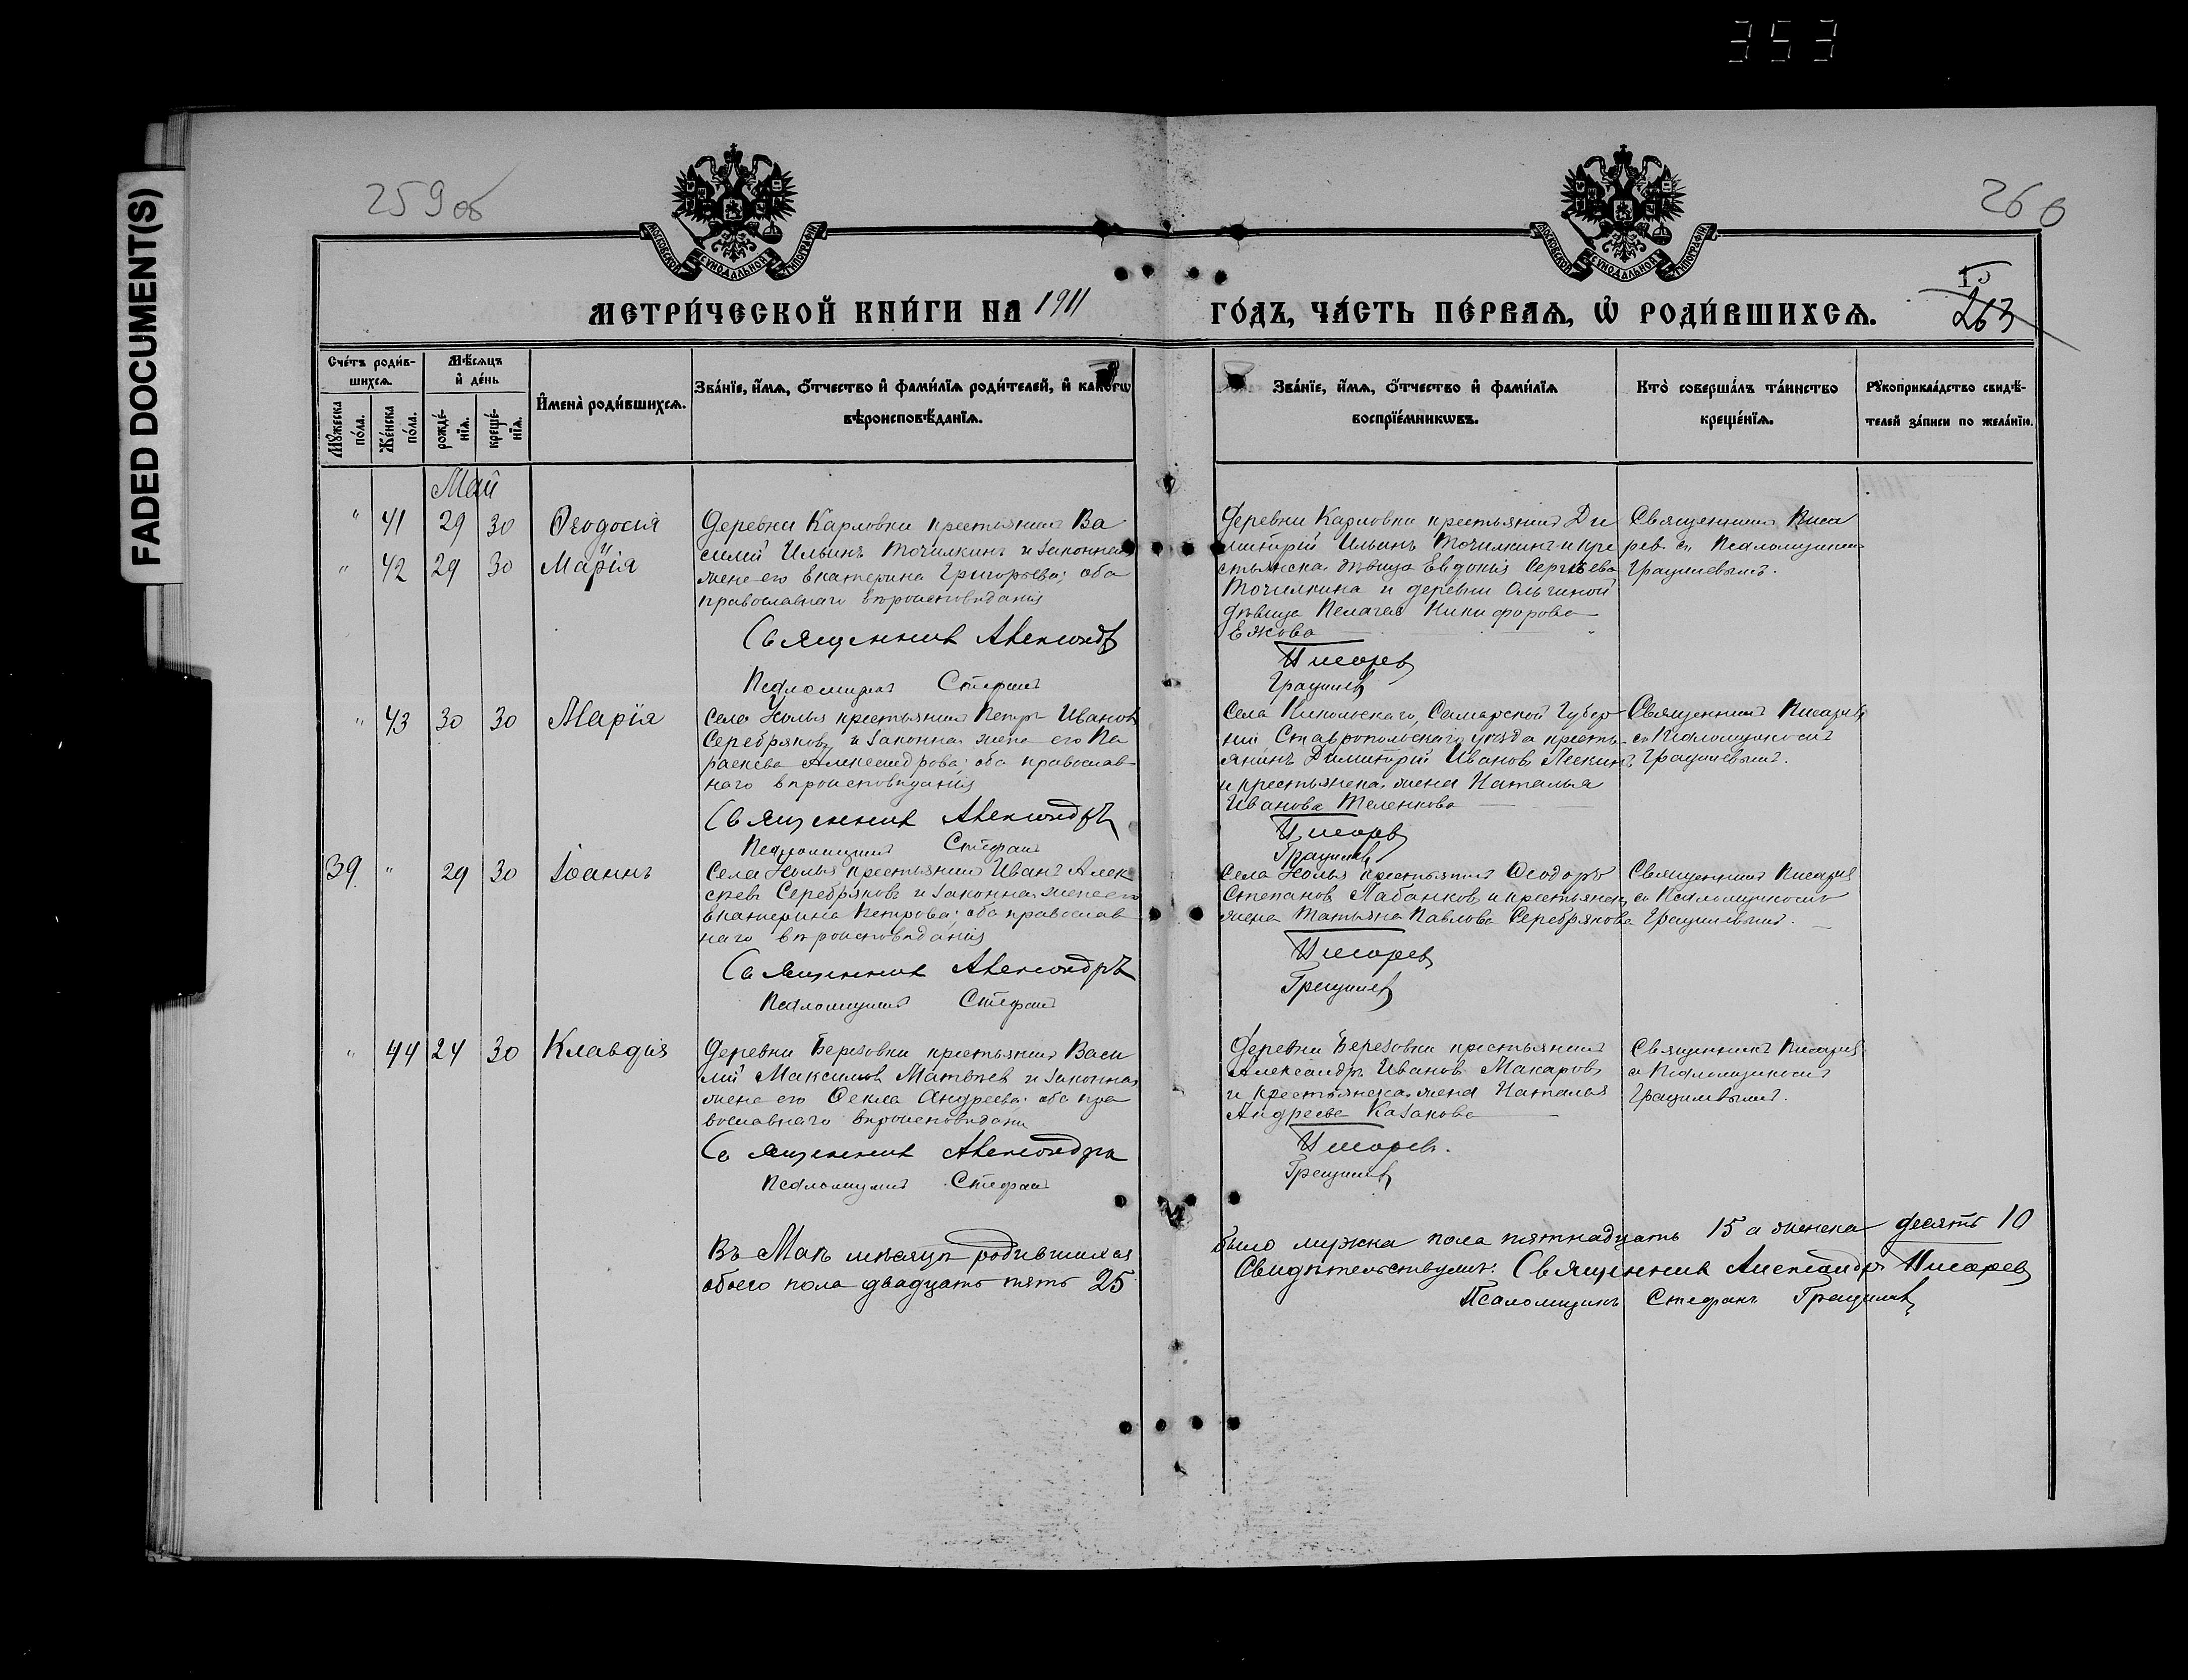 353
FADED DOCUMENT(S)
259 об
260
МОСКОВСКОЙ СѴНОДАЛЬНОЙ ТИПОГРАФІИ
МОСКОВСКОЙ СѴНОДАЛЬНОЙ ТИПОГРАФІИ
263
МЕТРИ́ЧЕСКОЙ КНИ́ГИ НА 1911
ГО́ДЪ, ЧА́СТЬ ПЕ́РВАѦ, Ѽ РОДИ́ВШИХСѦ.
Сче́тъ роди́в-
шихсѧ.
Мѣ́сѧцъ
и҆ де́нь
Мꙋ́жеска
по́ла.
Же́нска
по́ла.
рожде́-
нїѧ.
креще́-
нїѧ.
И҆мена̀ роди́вшихсѧ.
Зва́нїе, и҆́мѧ, ѻ҆́тчество и҆ фами́лїѧ роди́телей, и҆ како́гѡ
вѣроисповѣ́данїѧ.
Зва́нїе, и҆́мѧ, ѻ҆́тчество и҆ фами́лїѧ
воспрїе́мникѡвъ.
Кто̀ соверша́лъ та́инство
креще́нїѧ.
Рꙋкоприкла́дство свидѣ́-
телей за́писи по жела́нїю.
Май
" 41 29 30 Ѳеодосія
" 42 29 30 Марія
Деревни Карловки крестьянинъ Ва
силій Ильинъ Точилкинъ и законная
жена его Екатерина Григорьева; оба
православнаго вѣроисповѣданія
Священникъ Александръ
Псаломщикъ Стефанъ
Деревни Карловки крестьянинъ Ди
митрій Ильинъ Точилкинъ и кре
стьянская дѣвица Евдокія Сергѣева
Точилкина и деревни Ольгиной
дѣвица Пелагея Никифорова
Ежова
Писаревъ
Грацилевъ
Священникъ Писа
ревъ съ Псаломщикомъ
Грацилевымъ.
" 43 30 30 Марія
Села Холья крестьянинъ Петръ Ивановъ
Серебряковъ и законная жена его Па
раскева Александрова; оба православ
наго вѣроисповѣданія
Священникъ Александръ
Псаломщикъ Стефанъ
Села Никольскаго, Самарской Губер
ніи Ставропольскаго уѣзда кресть
янинъ Димитрій Ивановъ
и крестьянская жена Наталья
Иванова Теленкова
Писаревъ
Грацилевъ
Священникъ Писаревъ
съ Псаломщикомъ
Грацилевымъ.
39 " 29 30 Іоаннъ
Села Холья крестьянинъ Иванъ Алек
сѣевъ Серебряковъ и законная жена его
Екатерина Петрова; оба православ
наго вѣроисповѣданія
Священникъ Александръ
Псаломщикъ Стефанъ
Села Холья крестьянинъ Ѳеодоръ
Степановъ Лабанковъ и крестьянск
жена Татьяна Павлова Серебрякова
Писаревъ
Грацилевъ
Священникъ Писаревъ
съ Псаломщикомъ
Грацилевымъ.
" 44 24 30 Клавдія
Деревни Березовки крестьянинъ Васи
лій Максимовъ Матвѣевъ и законная
жена его Ѳекла Андреева; оба пра
вославнаго вѣроисповѣдани
Священникъ Александръ
Псаломщикъ Стефанъ
Деревни Березовки крестьянинъ
Александръ Ивановъ Макаровъ
и крестьянская жена Наталья
Андреева Казакова
Писаревъ.
Грацилевъ
Священникъ Писаревъ
съ Псаломщикомъ
Грацилевымъ.
Въ Маѣ мѣсяцѣ родившихся
обоего пола двадцать пять 25
было мужска пола пятнадцать 15 а женска десять 10
Свидѣтельствуемъ: Священникъ Александръ Писаревъ
Псаломщикъ Стефанъ Грацилевъ